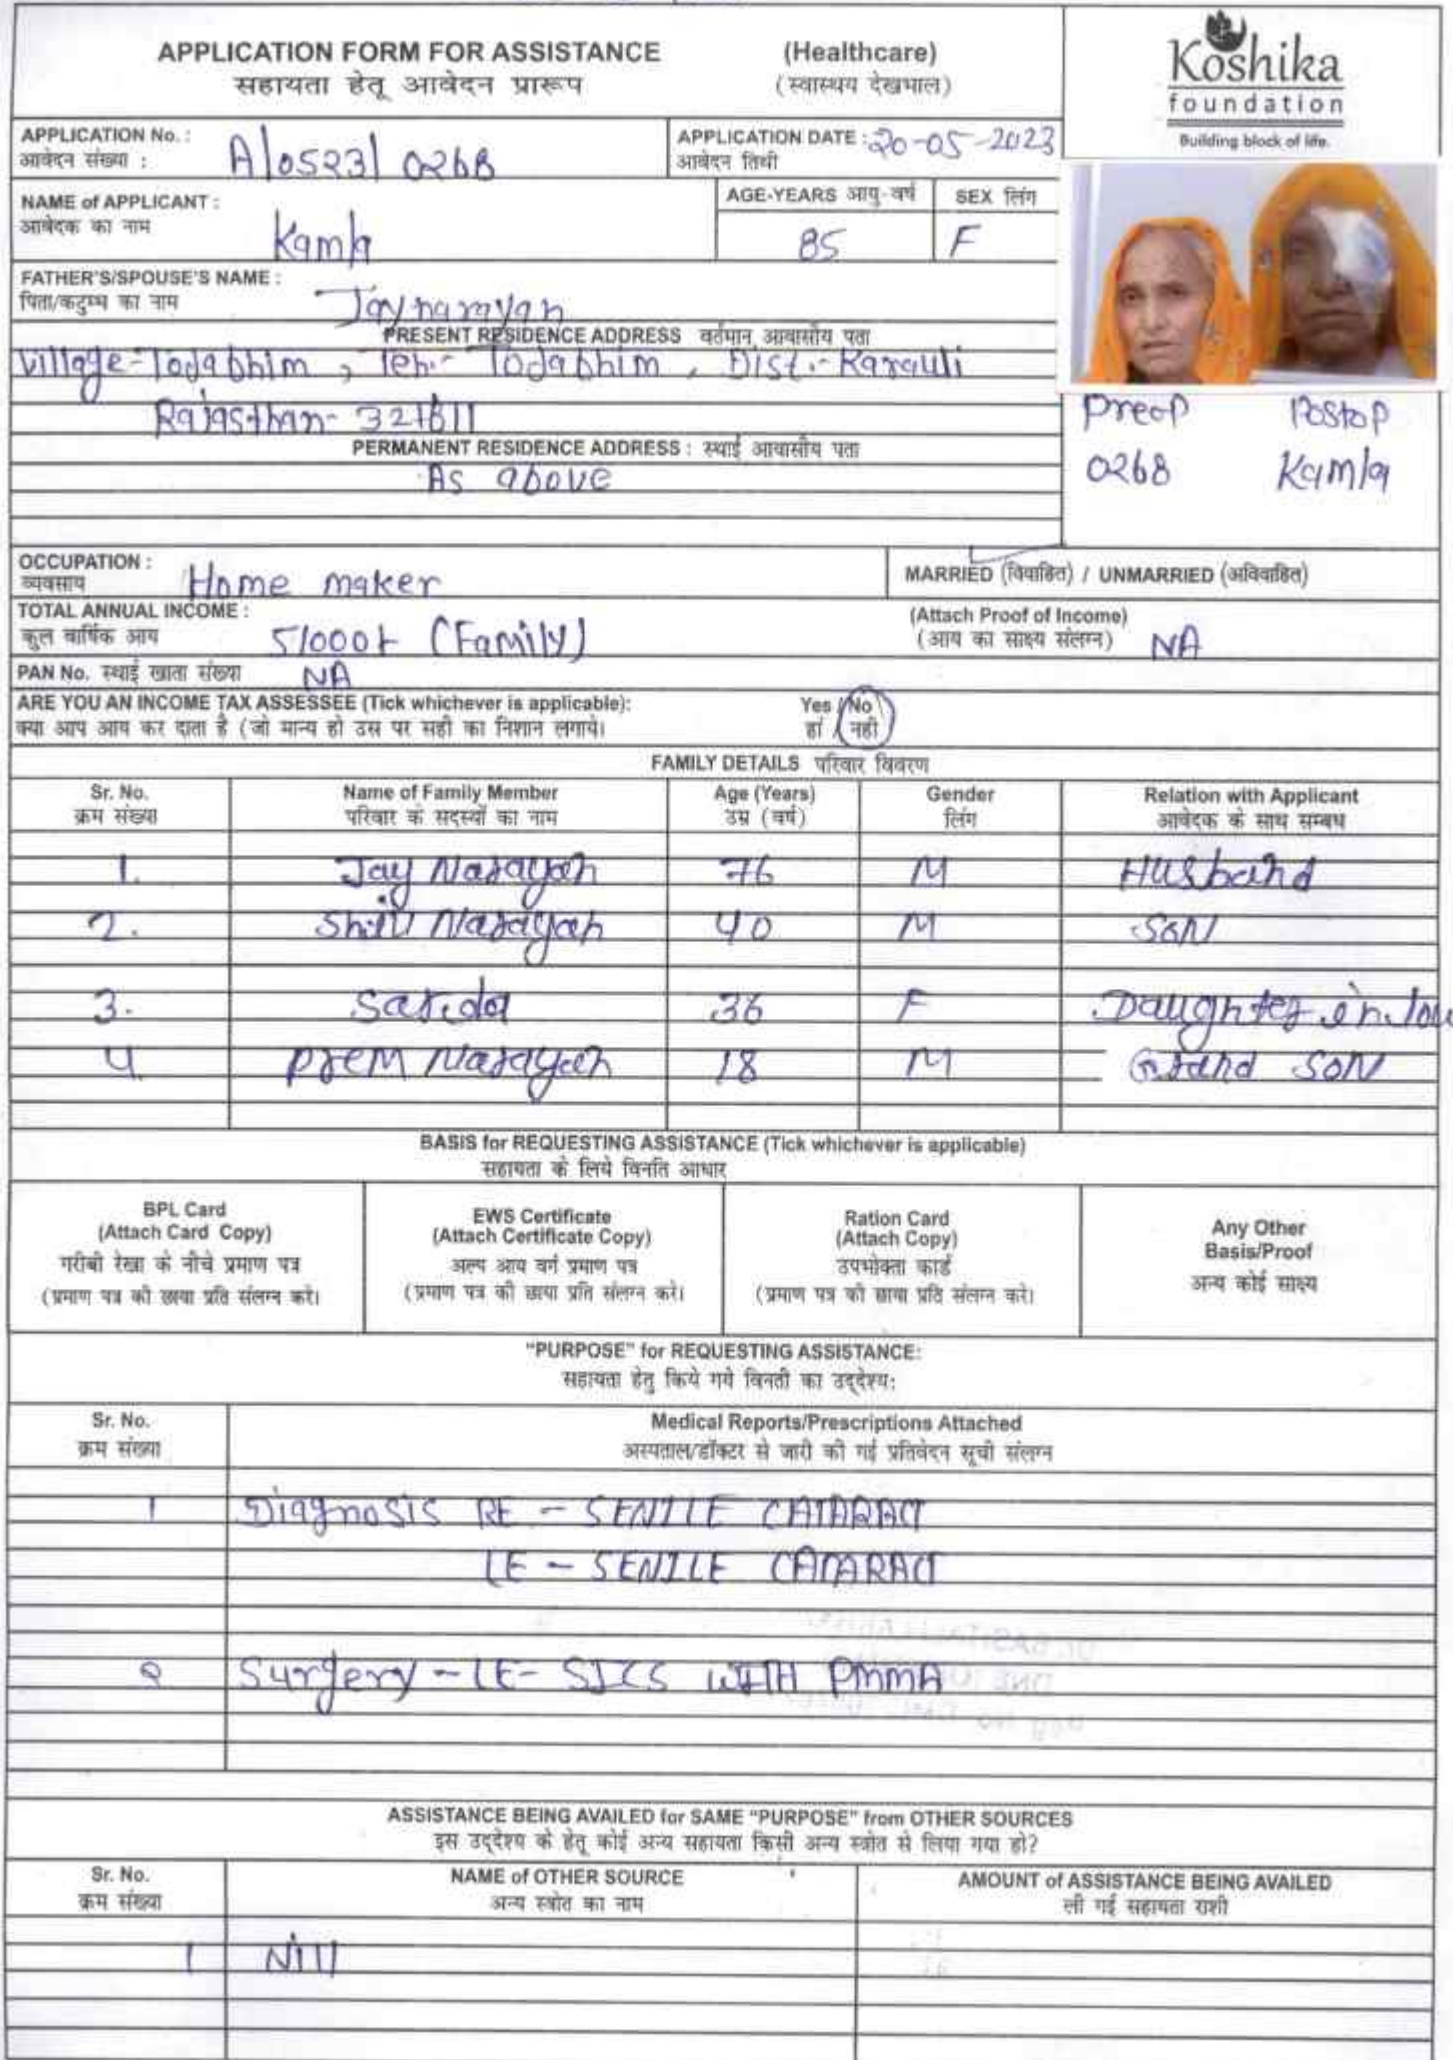 APPLICATION FORM FOR ASSISTANCE (Healthcare)
सहायता हेतू आवेदन प्रारूप (स्वास्थय देखभाल)
Koshika
foundation
Building block of life.
APPLICATION No. : A/0523/0268
आवेदन संख्या :
APPLICATION DATE : 20-05-2023
आवेदन तिथी
NAME of APPLICANT : Kamla
आवेदक का नाम
AGE-YEARS आयु-वर्ष 85
SEX लिंग F
FATHER'S/SPOUSE'S NAME : Jaynarayan
पिता/कटुम्ब का नाम
PRESENT RESIDENCE ADDRESS वर्तमान आवासीय पता
Village-Todabhim, Teh.- Todabhim, Dist.- Karauli
Rajasthan- 321611
Preop Postop
0268 Kamla
PERMANENT RESIDENCE ADDRESS : स्थाई आवासीय पता
As above
OCCUPATION : Home maker
व्यवसाय
MARRIED (विवाहित) / UNMARRIED (अविवाहित)
TOTAL ANNUAL INCOME : 51000/- (Family)
कुल वार्षिक आय
(Attach Proof of Income) NA
(आय का साक्ष्य संलग्न)
PAN No. स्थाई खाता संख्या NA
ARE YOU AN INCOME TAX ASSESSEE (Tick whichever is applicable): Yes / No
क्या आप आय कर दाता है (जो मान्य हो उस पर सही का निशान लगाये। हां / नही
FAMILY DETAILS परिवार विवरण
Sr. No. Name of Family Member Age (Years) Gender Relation with Applicant
क्रम संख्या परिवार के सदस्यों का नाम उम्र (वर्ष) लिंग आवेदक के साथ सम्बध
1. Jay Narayan 76 M Husband
2. Shiv Narayan 40 M SON
3. Sarida 36 F Daughter in law
4. Prem Narayan 18 M Grand SON
BASIS for REQUESTING ASSISTANCE (Tick whichever is applicable)
सहायता के लिये विनति आधार
BPL Card
(Attach Card Copy)
गरीबी रेखा के नीचे प्रमाण पत्र
(प्रमाण पत्र की छाया प्रति संलग्न करे।
EWS Certificate
(Attach Certificate Copy)
अल्प आय वर्ग प्रमाण पत्र
(प्रमाण पत्र की छाया प्रति संलग्न करे।
Ration Card
(Attach Copy)
उपभोक्ता कार्ड
(प्रमाण पत्र की छाया प्रति संलग्न करे।
Any Other
Basis/Proof
अन्य कोई साक्ष्य
"PURPOSE" for REQUESTING ASSISTANCE:
सहायता हेतु किये गये विनती का उद्देश्य:
Sr. No. Medical Reports/Prescriptions Attached
क्रम संख्या अस्पताल/डॉक्टर से जारी की गई प्रतिवेदन सूची संलग्न
1 Diagnosis RE - SENILE CATARACT
LE - SENILE CATARACT
2 Surgery - LE - SICS WITH PMMA
ASSISTANCE BEING AVAILED for SAME "PURPOSE" from OTHER SOURCES
इस उद्देश्य के हेतू कोई अन्य सहायता किसी अन्य स्त्रोत से लिया गया हो?
Sr. No. NAME of OTHER SOURCE AMOUNT of ASSISTANCE BEING AVAILED
क्रम संख्या अन्य स्त्रोत का नाम ली गई सहायता राशी
1 Nill